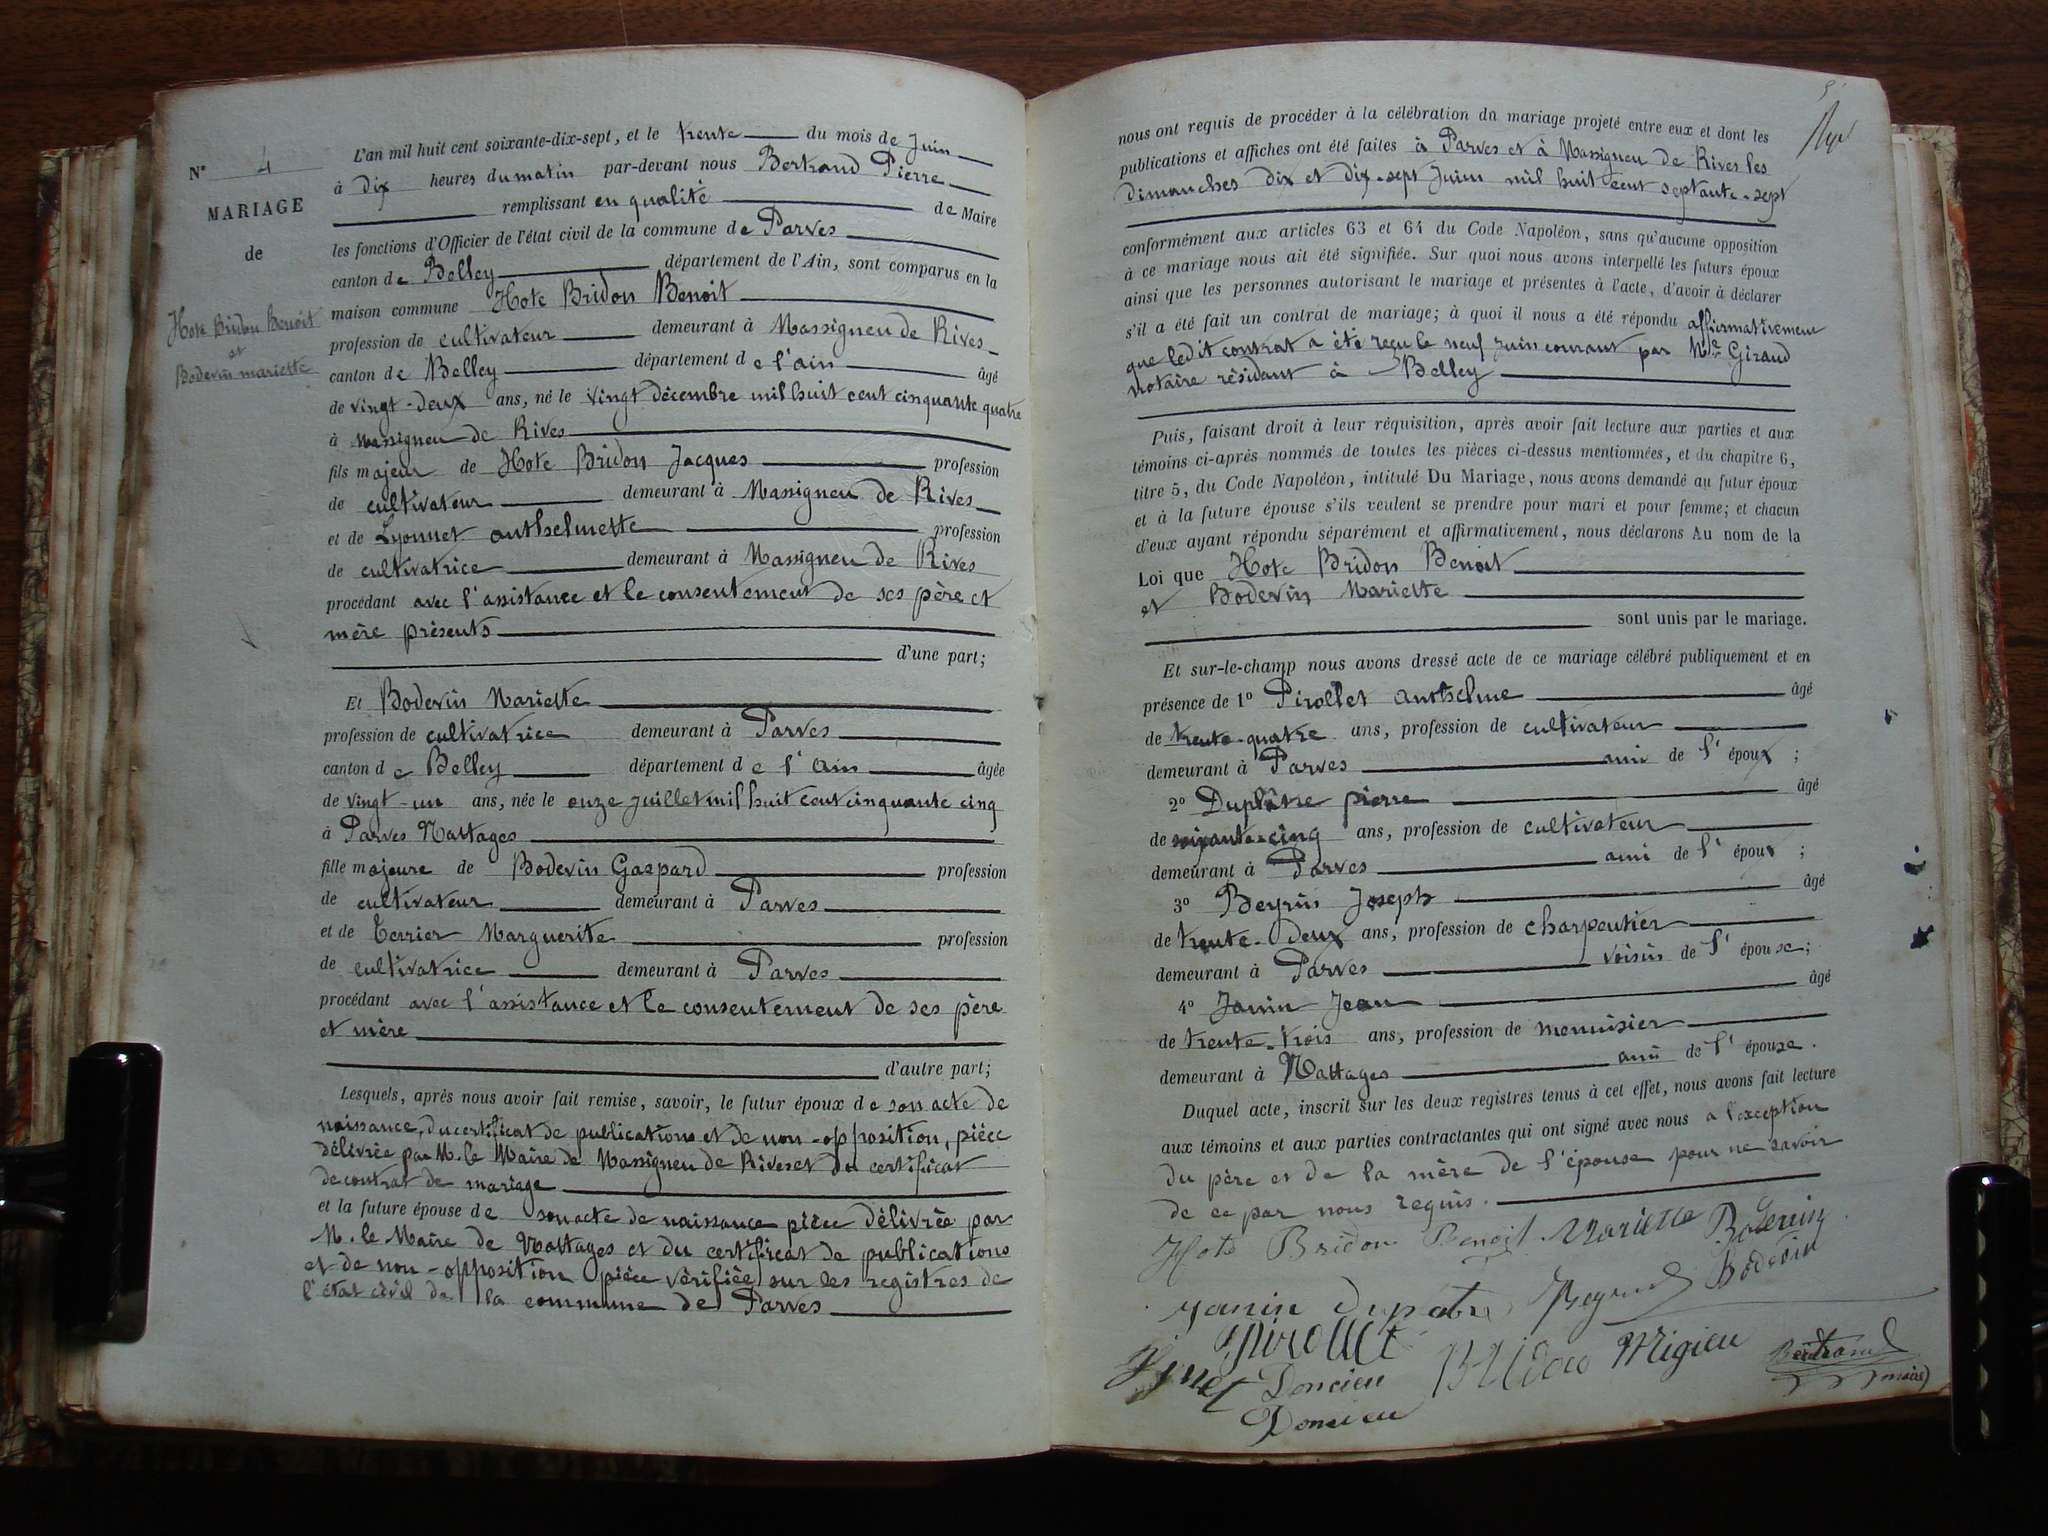 N° 4
MARIAGE
de
Hote Bridon Benoit
et
Bodevin mariette
L'an mil huit cent soixante-dix-sept, et le trente du mois de Juin
à dix heures du matin par-devant nous Bertrand Pierre
remplissant en qualité de Maire
les fonctions d'Officier de l'état civil de la commune de Parves
canton de Belley département de l'Ain, sont comparus en la
maison commune Hote Bridon Benoit
profession de cultivateur demeurant à Massigneu de Rives
canton de Belley département de l'ain âgé
de vingt-deux ans, né le vingt décembre mil huit cent cinquante quatre
à Massigneu de Rives
fils majeur de Hote Bridon Jacques profession
de cultivateur demeurant à Massigneu de Rives
et de Lyonnet anthelmette profession
de cultivatrice demeurant à Massigneu de Rives
procédant avec l'assistance et le consentement de ses père et
mère présents
d'une part;
Et Bodevin Mariette
profession de cultivatrice demeurant à Parves
canton de Belley département de l'ain âgée
de vingt-un ans, née le onze juillet mil huit cent cinquante cinq
à Parves Nattages
fille majeure de Bodevin Gaspard profession
de cultivateur demeurant à Parves
et de Terrier Marguerite profession
de cultivatrice demeurant à Parves
procédant avec l'assistance et le consentement de ses père
et mère
d'autre part;
Lesquels, après nous avoir fait remise, savoir, le futur époux de son acte de
naissance, du certificat de publications et de non-opposition, pièce
délivrée par M. le Maire de Massigneu de Rives et du certificat
de contrat de mariage
et la future épouse de son acte de naissance pièce délivrée par
M. le Maire de Nattages et du certificat de publications
et de non-opposition pièce vérifiée sur les registres de
l'état civil de la commune de Parves
nous ont requis de procéder à la célébration du mariage projeté entre eux et dont les
publications et affiches ont été faites à Parves et à Massigneu de Rives les
dimanches dix et dix-sept Juin mil huit cent septante-sept
conformément aux articles 63 et 64 du Code Napoléon, sans qu'aucune opposition
à ce mariage nous ait été signifiée. Sur quoi nous avons interpellé les futurs époux
ainsi que les personnes autorisant le mariage et présentes à l'acte, d'avoir à déclarer
s'il a été fait un contrat de mariage; à quoi il nous a été répondu affirmativement
que ledit contrat a été reçu le neuf juin courant par Me Giraud
notaire résidant à Belley
Puis, faisant droit à leur réquisition, après avoir fait lecture aux parties et aux
témoins ci-après nommés de toutes les pièces ci-dessus mentionnées, et du chapitre 6,
titre 5, du Code Napoléon, intitulé Du Mariage, nous avons demandé au futur époux
et à la future épouse s'ils veulent se prendre pour mari et pour femme; et chacun
d'eux ayant répondu séparément et affirmativement, nous déclarons Au nom de la
Loi que Hote Bridon Benoit
et Bodevin Mariette
sont unis par le mariage.
Et sur-le-champ nous avons dressé acte de ce mariage célébré publiquement et en
présence de 1° Pirollet anthelme âgé
de trente-quatre ans, profession de cultivateur
demeurant à Parves ami de l'époux ;
2° Duplâtre pierre âgé
de soixante-cinq ans, profession de cultivateur
demeurant à Parves ami de l'époux ;
3° Beyrin Joseph âgé
de trente-deux ans, profession de charpentier
demeurant à Parves voisin de l'épouse;
4° Janin Jean âgé
de trente-trois ans, profession de menuisier
demeurant à Nattages ami de l'épouse.
Duquel acte, inscrit sur les deux registres tenus à cet effet, nous avons fait lecture
aux témoins et aux parties contractantes qui ont signé avec nous a l'exception
du père et de la mère de l'épouse pour ne savoir
de ce par nous requis.
Hote Bridon Benoit Mariette Bodevin
Bodevin
Janin
Pirollet
Doncieu Migieu Bertrand
maire
Doncieu